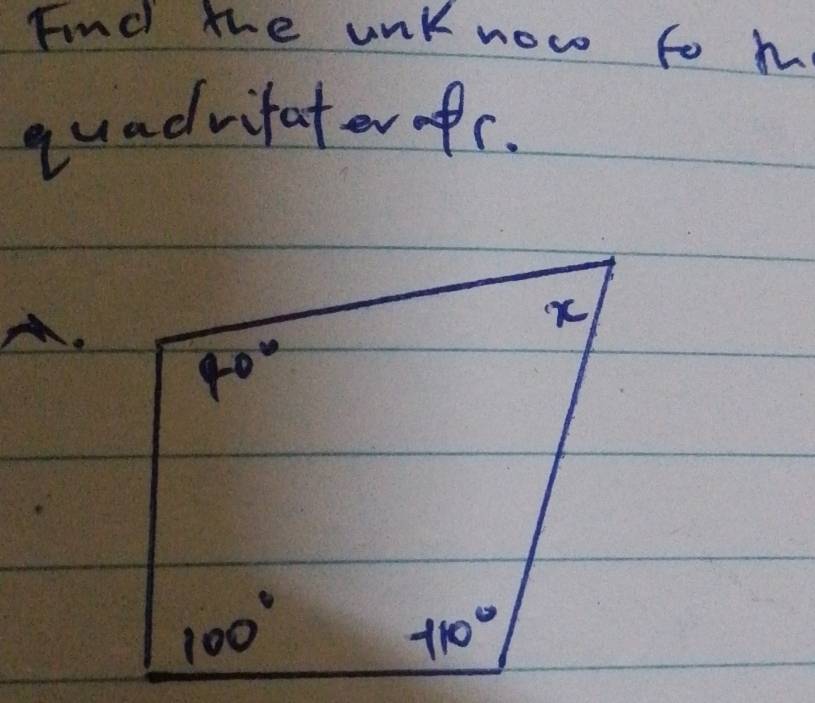 Find the unknow fo the
quadritaterals.
A.
x
90°
100°
110°